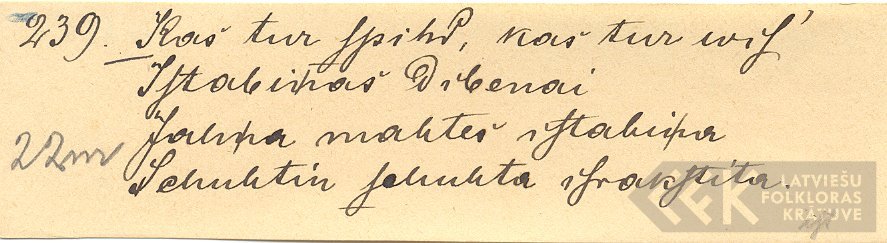 239. Kas tur spihd, kas tur wis'
Istabiņas Dibenai
Jahņa mahtes istabiņa
Schuhtin schuhta israkstita.
22m
LATVIEŠU
FOLKLORAS
KRĀTUVE